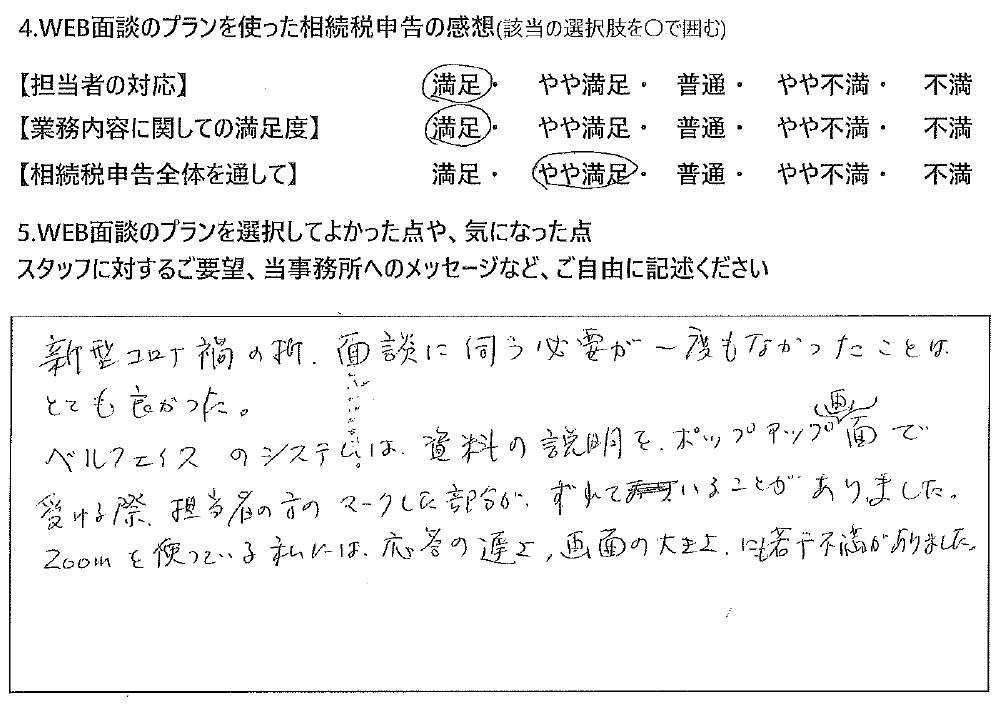 4.WEB面談のプランを使った相続税申告の感想(該当の選択肢を〇で囲む)
【担当者の対応】 満足・ やや満足・ 普通・ やや不満・ 不満
【業務内容に関しての満足度】 満足・ やや満足・ 普通・ やや不満・ 不満
【相続税申告全体を通して】 満足・ やや満足・ 普通・ やや不満・ 不満
5.WEB面談のプランを選択してよかった点や、気になった点
スタッフに対するご要望、当事務所へのメッセージなど、ご自由に記述ください
新型コロナ禍の折、面談に伺う必要が一度もなかったことは
とても良かった。
ベルフェイスのシステムは、資料の説明を、ポップアップ画面で
受ける際、担当者の方のマークした部分が、ずれていることがありました。
Zoomを使っている私には、応答の遅さ、画面の大きさ、にも若干不満がありました。